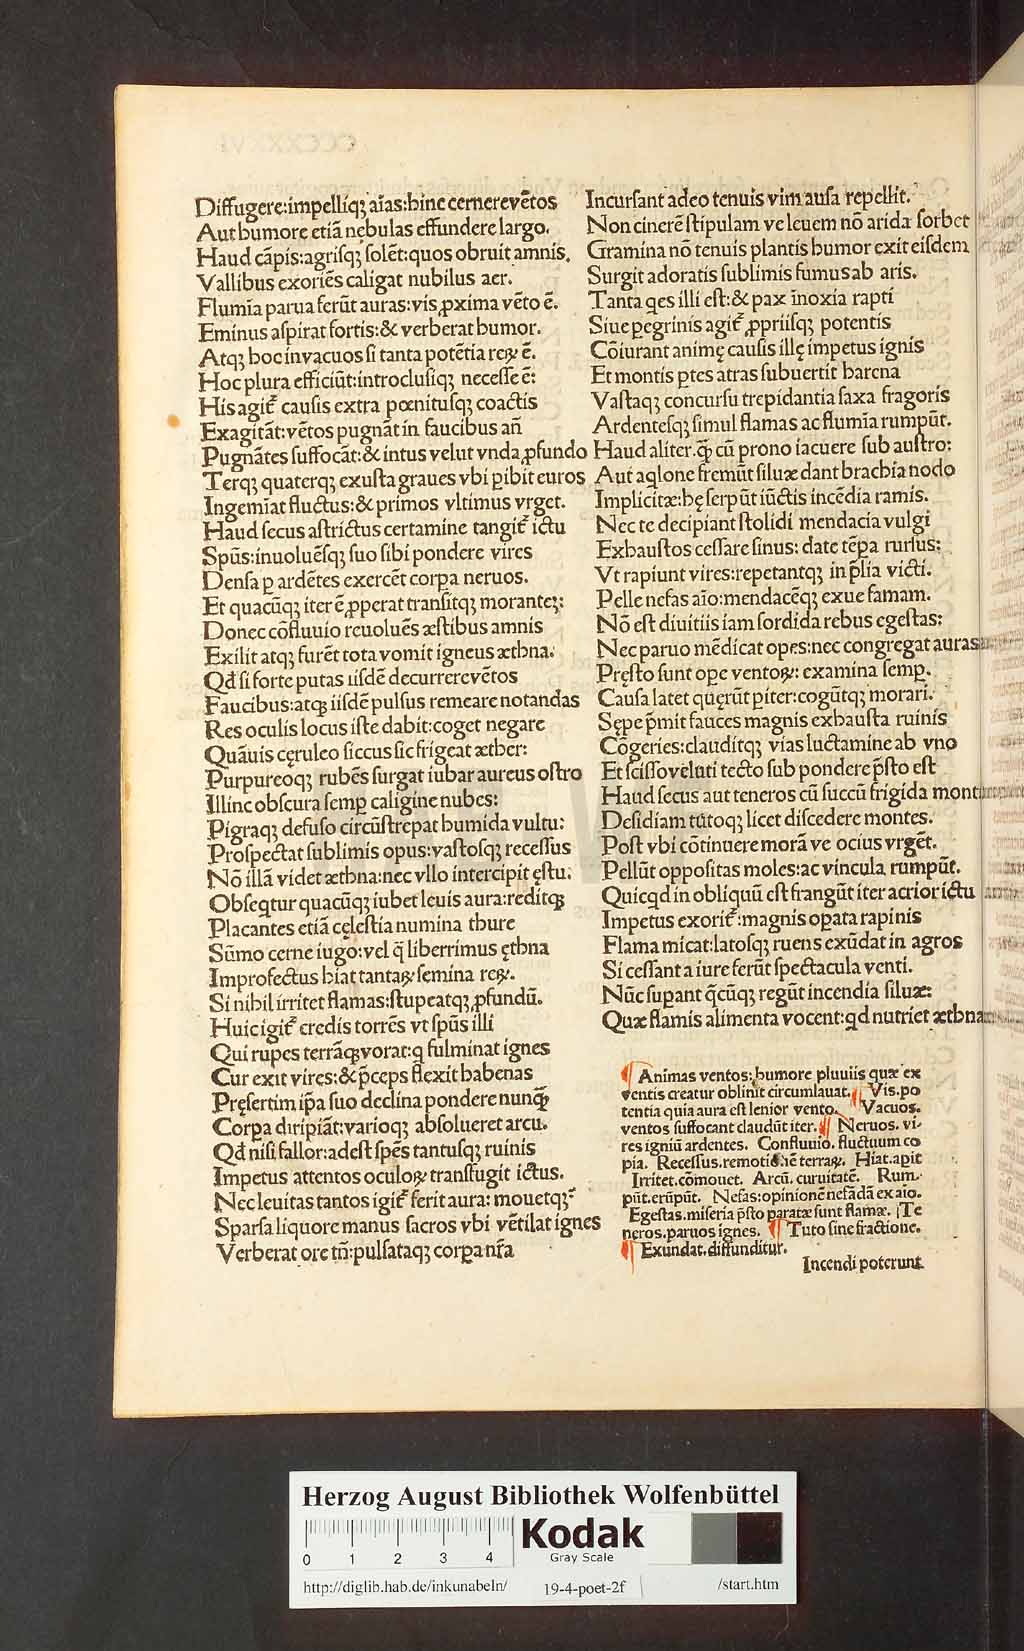 Diffugere:impelliq; aīas:hinc cernere vētos
Aut humore etiā nebulas effundere largo.
Haud cāpis:agrisq; solēt:quos obruit amnis.
Vallibus exoriēs caligat nubilus aer.
Flumīa parua ferūt auras:vis ꝓxima vēto ē.
Eminus aspirat fortis:& verberat humor.
Atq; hoc in vacuos si tanta potētia reꝝ ē.
Hoc plura efficiūt:introclusiq; necesse ē:
His agit᷑ causis extra pœnitusq; coactis
Exagitāt:vētos pugnāt in faucibus añ
Pugnātes suffocāt:& intus velut vnda ꝓfundo
Terq; quaterq; exusta graues vbi ꝑibit euros
Ingemīat fluctus:& primos vltimus vrget.
Haud secus astrictus certamine tangit᷑ ictu
Spūs:inuoluēsq; suo sibi pondere vires
Densa ꝑ ardētes exercēt corꝑa neruos.
Et quacūq; iter ē ꝓperat transitq; morantez:
Donec cōfluuio reuoluēs æstibus amnis
Exilit atq; furēt tota vomit igneus æthna.
Qđ si forte putas iisdē decurrere vētos
Faucibus:atꝗ iisdē pulsus remeare notandas
Res oculis locus iste dabit:coget negare
Quāuis cęruleo siccus sic frigeat æther:
Purpureoq; rubēs surgat iubar aureus ostro
Illinc obscura semꝑ caligine nubes:
Pigraq; defuso circūstrepat humida vultu:
Prospectat sublimis opus:vastosq; recessus
Nō illā videt æthna:nec vllo intercipit ęstu.
Obseqtur quacūq; iubet leuis aura:reditꝗ
Placantes etiā cęlestia numina thure
Sūmo cerne iugo:vel q̄ liberrimus ęthna
Improfectus hiat tantaꝝ semina reꝝ.
Si nihil irritet flamas:stupeatq; ꝓfundū.
Huic igit᷑ credis torrēs vt spūs illi
Qui rupes terrāꝗ vorat:q fulminat ignes
Cur exit vires:& p̄ceps flexit habenas
Pręsertim ip̄a suo declina pondere nunꝗ̄
Corꝑa diripiāt:varioq; absolueret arcu.
Qđ nisi fallor:adest spēs tantusq; ruinis
Impetus attentos oculoꝝ transfugit ictus.
Nec leuitas tantos igit᷑ ferit aura: mouetq;:
Sparsa liquore manus sacros vbi vētilat ignes
Verberat ore tñ:pulsataq; corꝑa nr̄a
Incursant adeo tenuis vim ausa repellit.
Non cinerē stipulam ve leuem nō arida sorbet
Gramina nō tenuis plantis humor exit eisdem
Surgit adoratis sublimis fumus ab aris.
Tanta qes illi est:& pax īnoxia rapti
Siue peregrinis agit᷑ ꝓpriisq; potentis
Cōiurant animę causis illę impetus ignis
Et montis ꝑtes atras subuertit harena
Vastaq; concursu trepidantia saxa fragoris
Ardentesq; simul flamas ac flumīa rumpūt.
Haud aliter ꝗ̄ cū prono iacuere sub austro:
Aut aqlone fremūt siluæ dant brachia nodo
Implicitæ:hę serpūt iūctis incēdia ramis.
Nec te decipiant stolidi mendacia vulgi
Exhaustos cessare sinus: date tēꝑa rursus:
Vt rapiunt vires:repetantq; in p̄lia victi.
Pelle nefas aīo:mendacēq; exue famam.
Nō est diuitiis iam sordida rebus egestas:
Nec paruo mēdicat opes:nec congregat auras
Pręsto sunt ope ventoꝝ: examina semꝑ.
Causa latet quęrūt ꝑiter:cogūtq; morari.
Sępe p̄mit fauces magnis exhausta ruinis
Cōgeries:clauditq; vias luctamine ab vno
Et scisso veluti tecto sub pondere p̄sto est
Haud secus aut teneros cū succū frigida monti
Desidiam tutoq; licet discedere montes.
Post vbi cōtinuere morā ve ocius vrgēt.
Pellūt oppositas moles:ac vincula rumpūt.
Quicqd in obliquū est frangūt iter acrior ictu
Impetus exorit᷑:magnis oꝑata rapinis
Flama micat:latosq; ruens exūdat in agros
Si cessant a iure ferūt spectacula venti.
Nūc supant q̄cūq; regūt incendia siluæ:
Quæ flamis alimenta vocent:qd nutriet æthna
¶ Animas ventos: humore pluuiis quæ ex
ventis creatur oblinit circumlauat. ¶ Vis.po
tentia quia aura est lenior vento. ¶ Vacuos.
ventos suffocant claudūt iter. ¶ Neruos. vi-
res igniū ardentes. Confluuio. fluctuum co
pia. Recessus.remotiōnē terraꝝ. Hiat.aꝑit
Irritet.cōmouet. Arcū.curuitatē. Rum-
pūt.erūpūt. Nefas:opinionē nefādā ex aīo.
Egestas.miseria p̄sto paratæ sunt flamæ. ¶Te
neros.paruos ignes. ¶ Tuto sine fractione.
¶ Exundat.diffunditur.
Incendi poterunt
Herzog August Bibliothek Wolfenbüttel
0 1 2 3 4
Kodak
Gray Scale
http://diglib.hab.de/inkunabeln/ 19-4-poet-2f /start.htm